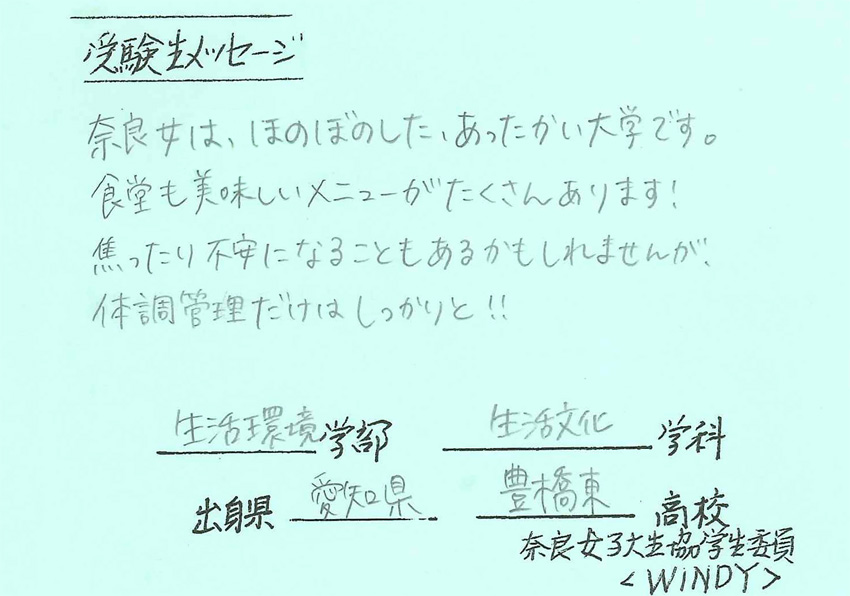 受験生メッセージ
奈良女は、ほのぼのした、あったかい大学です。
食堂も美味しいメニューがたくさんあります!
焦ったり不安になることもあるかもしれませんが、
体調管理だけはしっかりと!!
生活環境学部 生活文化学科
出身県 愛知県 豊橋東高校
奈良女子大生協学生委員
<WiNDY>